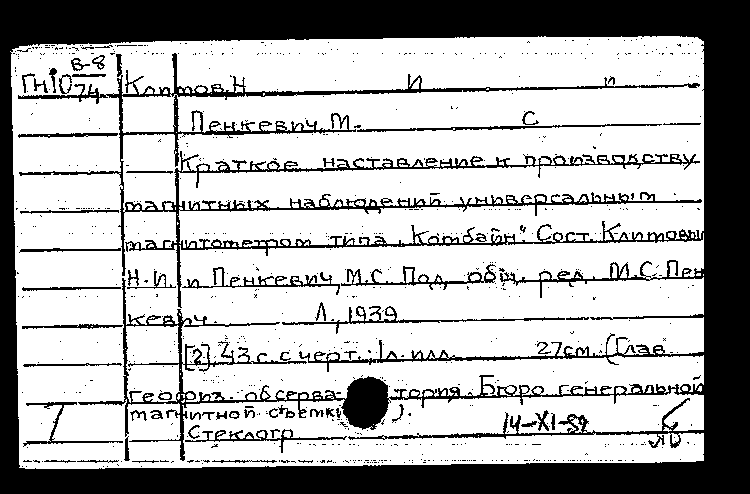 В-8
ГН10 74 Климов, Н И и
Пенкевич, М. С
Краткое наставление к производству
магнитных наблюдений универсальным
магнитометром типа „Комбейн". Сост. Климовым
Н.И. и Пенкевич, М.С. Под общ. ред. М.С. Пен
кевич. Л., 1939
[2], 43 с. с черт.; 1 л. илл. 27см. (Глав.
геофиз. обсерватория. Бюро генеральной
магнитной съемки ).
Стеклогр 14-XI-59